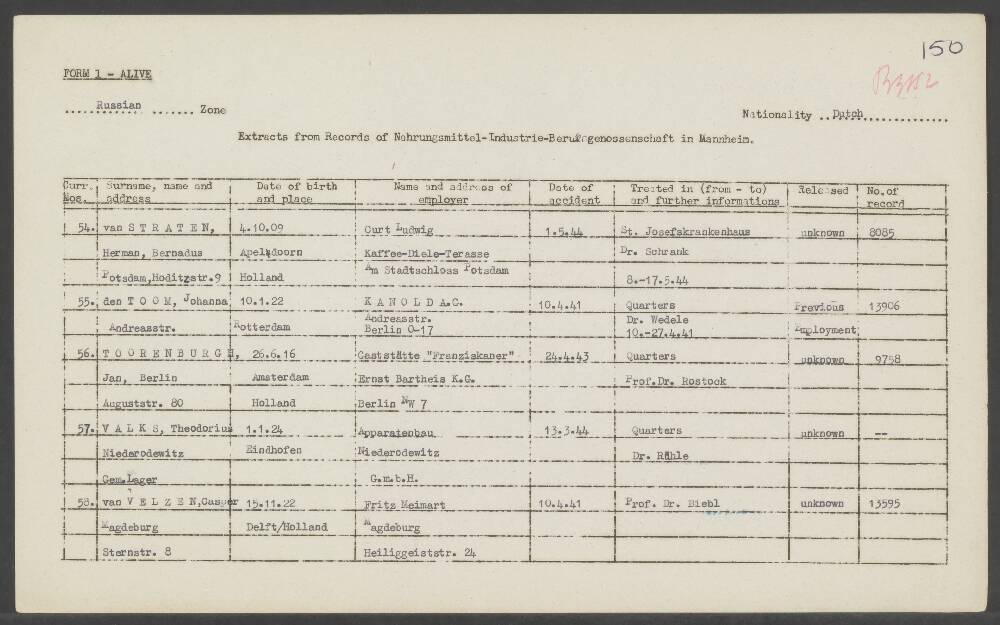 150
FORM 1 - ALIVE
..... Russian ....... Zone
Nationality .. Dutch ..............
Extracts from Records of Nahrungsmittel-Industrie-Berufsgenossenschaft in Mannheim.
Curr. Nos. | Surname, name and address | Date of birth and place | Name and address of employer | Date of accident | Treated in (from - to) and further informations | Released | No.of record
54. van S T R A T E N, | 4.10.09 | Curt Ludwig | 1.5.44 | St. Josefskrankenhaus | unknown | 8085
Herman, Bernadus | Apeldoorn | Kaffee-Diele-Terasse | Dr. Schrank
Potsdam,Hoditzstr.9 | Holland | Am Stadtschloss Potsdam | 8.-17.5.44
55. den T O O M, Johanna | 10.1.22 | K A N O L D A.G. | 10.4.41 | Quarters | Previous | 13906
Andreasstr. | Rotterdam | Andreasstr. Berlin O-17 | Dr. Wedele 10.-27.4.41 | Employment
56. T O O R E N B U R G H, | 26.6.16 | Gaststätte "Franziskaner" | 24.4.43 | Quarters | unknown | 9758
Jan, Berlin | Amsterdam | Ernst Bartheis K.G. | Prof.Dr. Rostock
Auguststr. 80 | Holland | Berlin NW 7
57. V A L K S, Theodorius | 1.1.24 | Apparatenbau | 13.3.44 | Quarters | unknown | --
Niederodewitz | Eindhofen | Niederodewitz | Dr. Rühle
Gem.Lager | G.m.b.H.
58. van V E L Z E N,Casper | 15.11.22 | Fritz Meimart | 10.4.41 | Prof. Dr. Biebl | unknown | 13595
Magdeburg | Delft/Holland | Magdeburg
Sternstr. 8 | Heiliggeiststr. 24